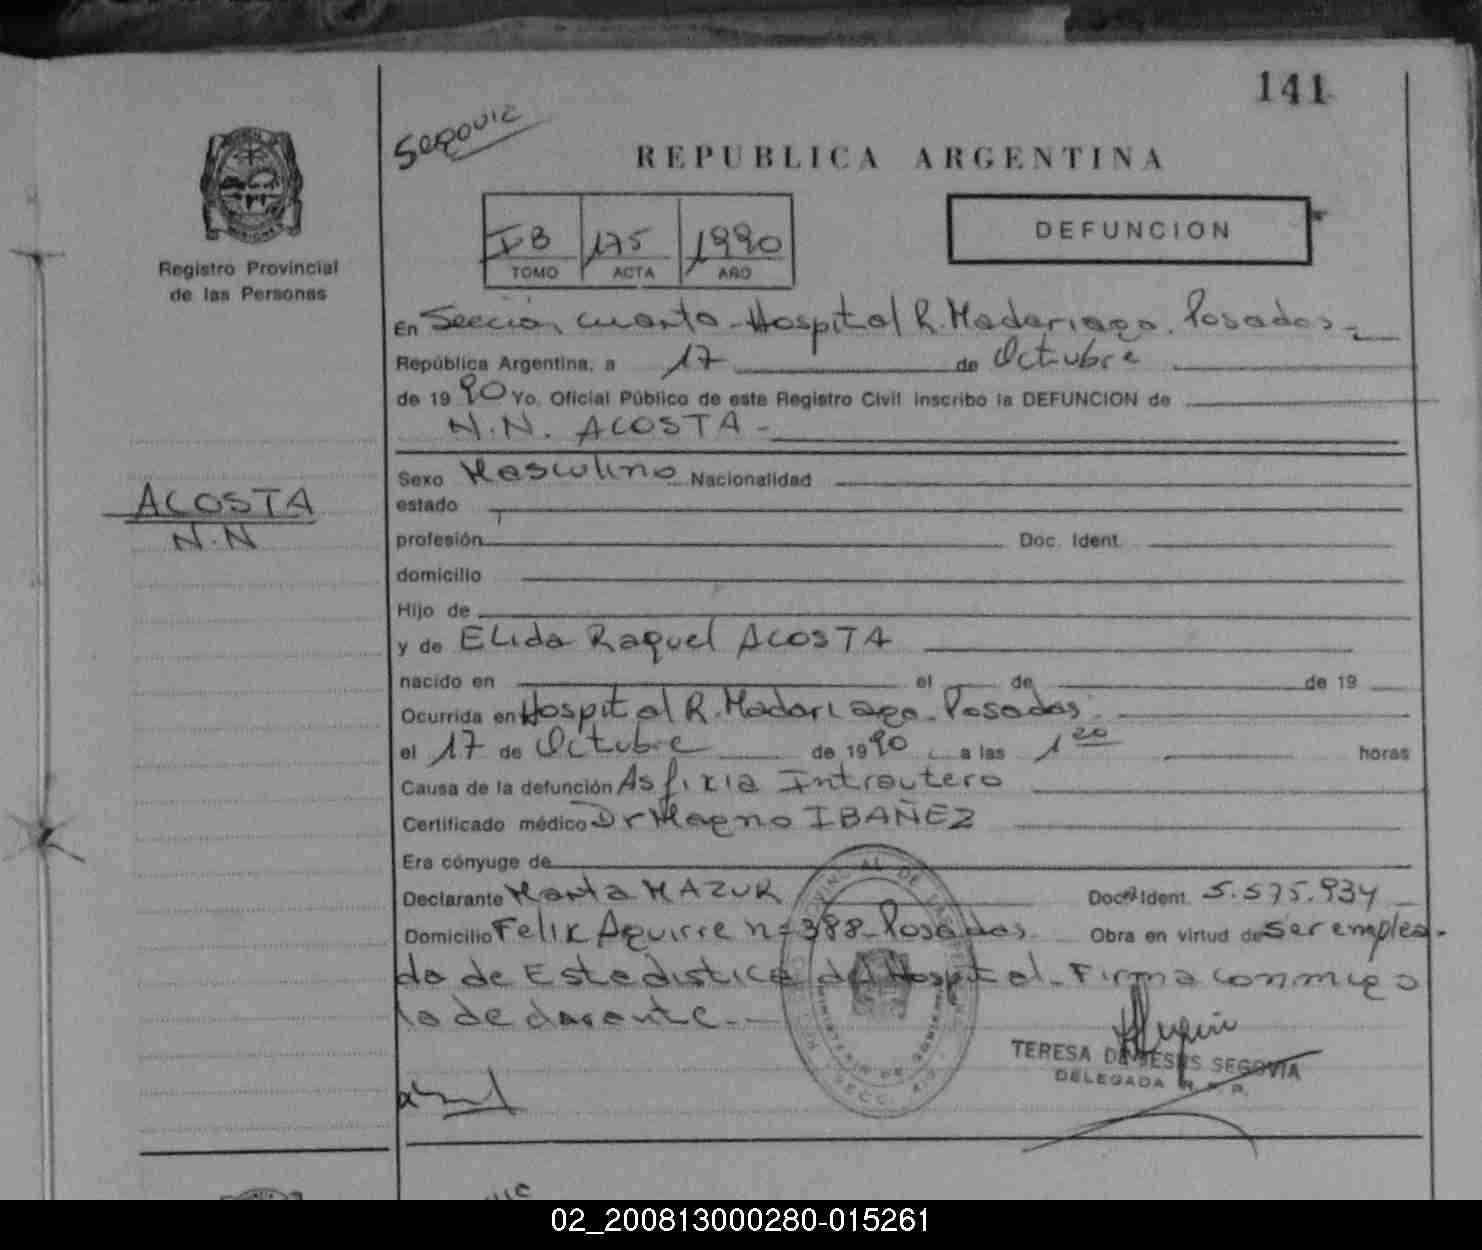 141
Segovia
REPUBLICA ARGENTINA
IB 175 1990
TOMO ACTA AÑO
DEFUNCION
Registro Provincial
de las Personas
En Sección cuarta - Hospital R. Madariaga. Posadas -
República Argentina, a 17 de Octubre
de 1990 Yo, Oficial Público de este Registro Civil inscribo la DEFUNCION de
N.N. ACOSTA -
ACOSTA
N.N
Sexo Masculino Nacionalidad
estado
profesión Doc. Ident.
domicilio
Hijo de
y de ELida Raquel ACOSTA
nacido en el de de 19
Ocurrida en Hospital R. Madariaga. Posadas.
el 17 de Octubre de 1990 a las 1 20 horas
Causa de la defunción Asfixia Intrautero
Certificado médico Dr Magno IBAÑEZ
Era cónyuge de
Declarante Marta MAZUR Doc. Ident. 5.575.934
Domicilio Felix Aguirre nº 388 - Posadas. Obra en virtud de ser emplea-
da de Estadistica del Hospital - Firma conmigo
la declarante.-
TERESA DE JESUS SEGOVIA
DELEGADA R. P. P.
02_200813000280-015261